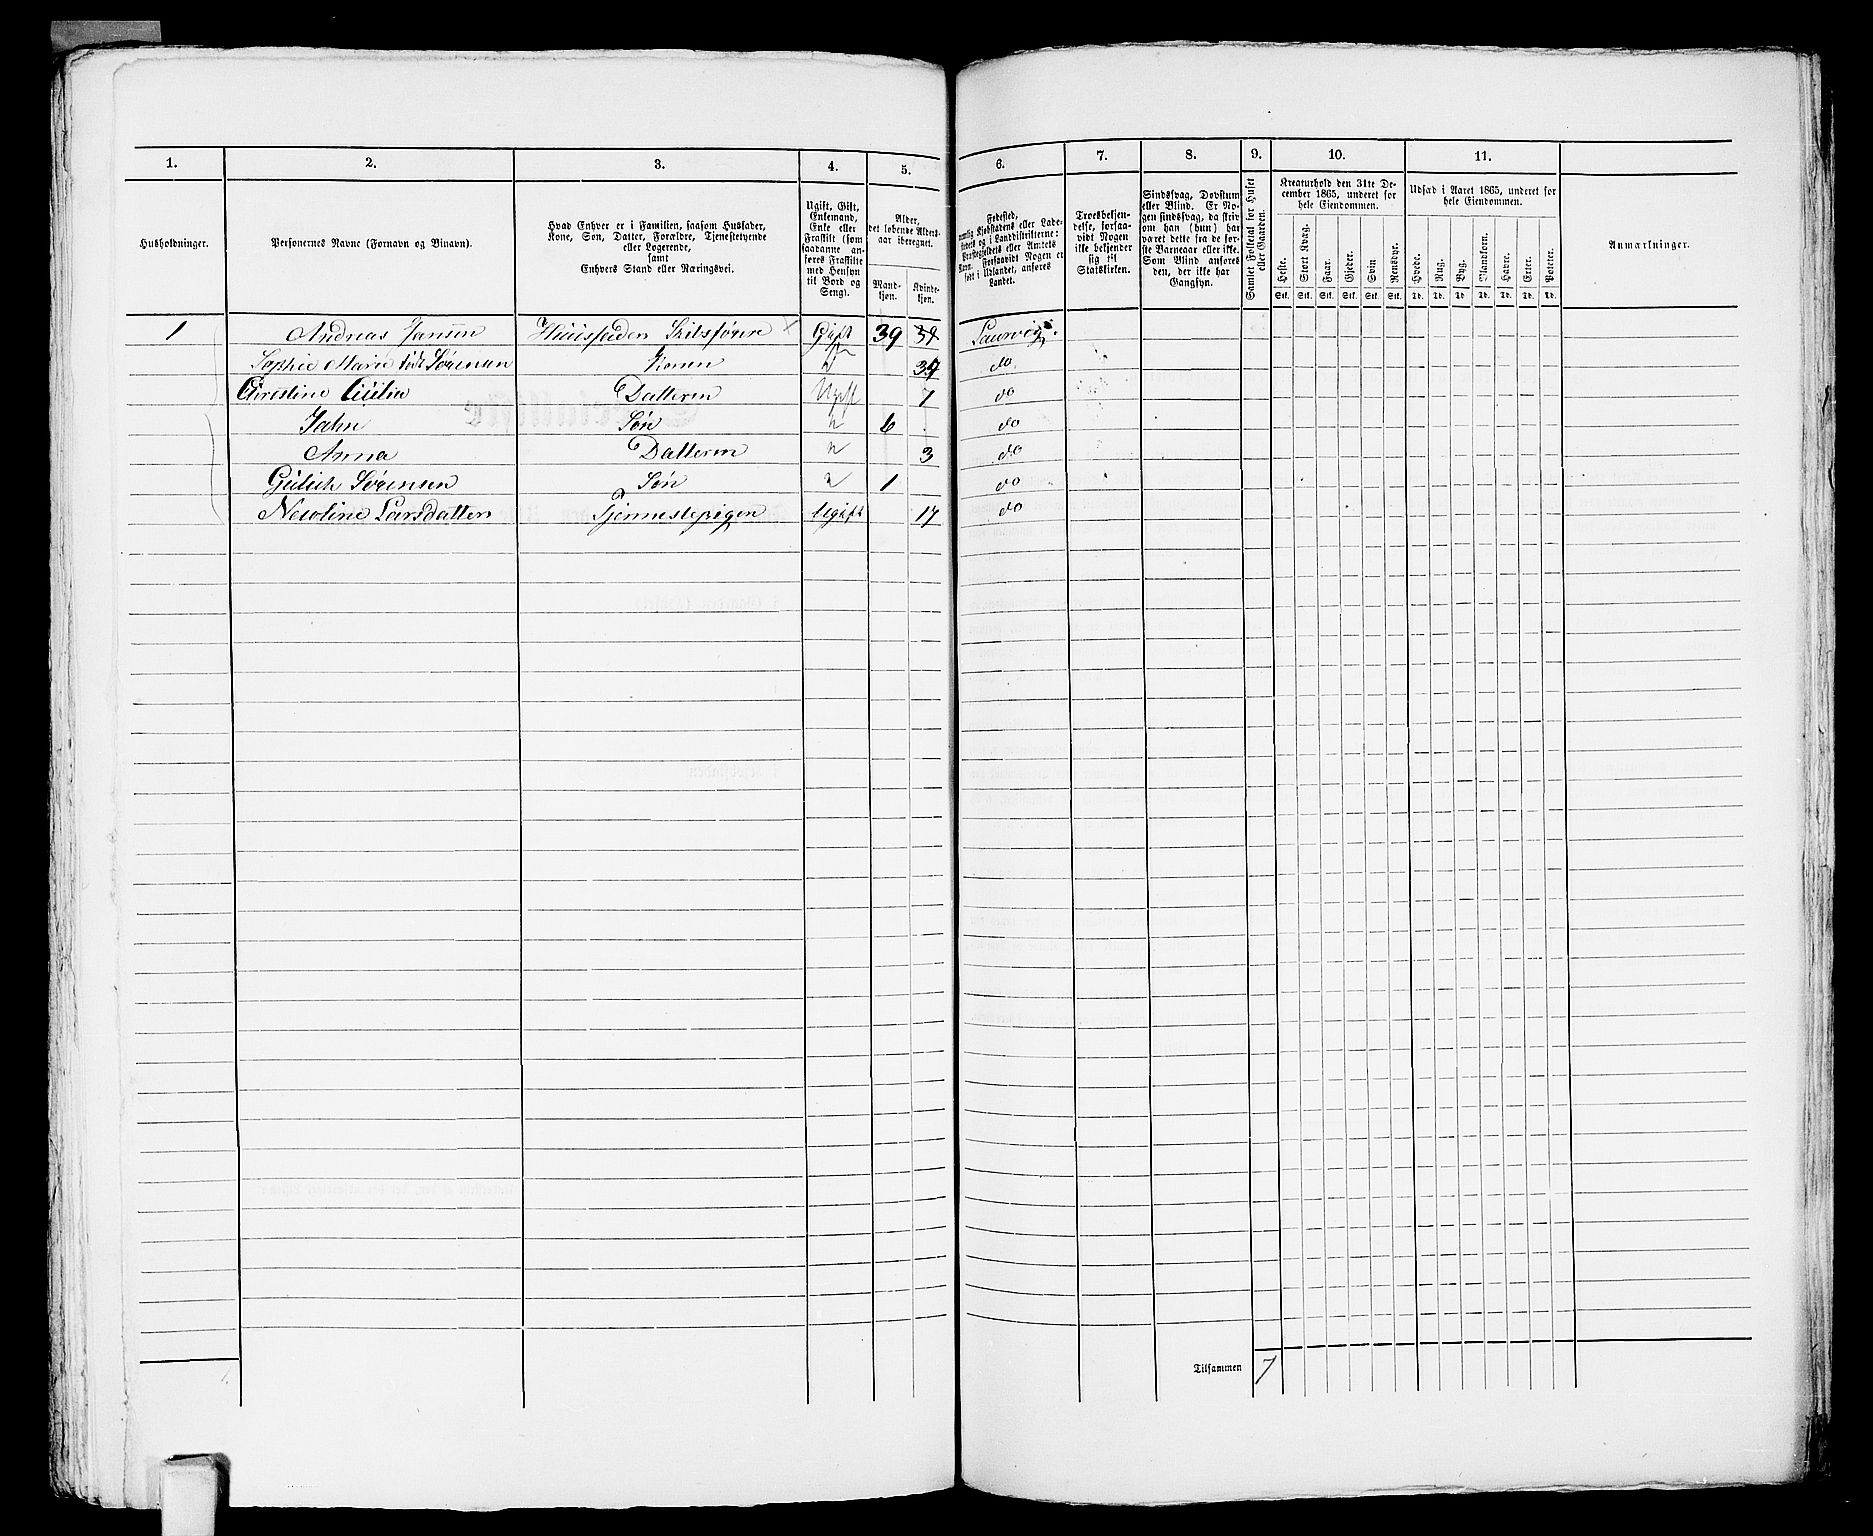 1. 2. 3. 4. 5. 6. 7. 8. 9. 10. 11.
Husholdninger.
Personernes Navne (Fornavn og Binavn).
Hvad Enhver er i Familien, saasom Husfader,
Kone, Søn, Datter, Forældre, Tjenestetyende
eller Logerende,
samt
Enhvers Stand eller Næringsvei.
Ugift, Gift,
Enkemand,
Enke eller
Fraskilt (som
saadanne an-
føres Fraskilte
med Hensyn
til Bord og
Seng).
Alder,
det løbende Alders-
aar iberegnet.
Mand-
kjøn.
Kvinde-
kjøn.
Fødested,
nemlig Kjøbstadens eller Lade-
stedets og i Landdistrikterne:
Præstegjeldets eller Amtets
Navn. Forsaavidt Nogen er
født i Udlandet, anføres
Landet.
Troesbekjen-
delse, forsaa-
vidt Nogen
ikke bekjender
sig til
Statskirken.
Sindssvag, Døvstum
eller Blind. Er No-
gen sindssvag, da skriv
om han (hun) har
været dette fra de før-
ste Barneaar eller ikke.
Som Blind anføres
den, der ikke har
Gangsyn.
Samlet Folketal for Huset
eller Gaarden.
Kreaturhold den 31te De-
cember 1865, underet for
hele Eiendommen.
Heste. Stort Kvæg. Faar. Gjeder. Svin Rensdyr.
Stk. Stk. Stk. Stk. Stk. Stk.
Udsæd i Aaret 1865, underet for
hele Eiendommen.
Hvede. Rug. Byg. Blandkorn. Havre. Erter. Poteter.
Td. Td. Td Td. Td. Td. Td.
Anmærkninger.
1 Andreas Jansen Huusfaden Skibsfører Gift 39 39 Laurvig.
Sophie Marie født Sørensen Konen " 39 do
Christine Cecilie Datteren Ugift 7 do
Jahn Søn " 6 do
Anna Datteren " 3 do
Sørensen Søn " 1 do
Larsdatter Tjennestepigen Ugift 17 do
Tilsammen 7